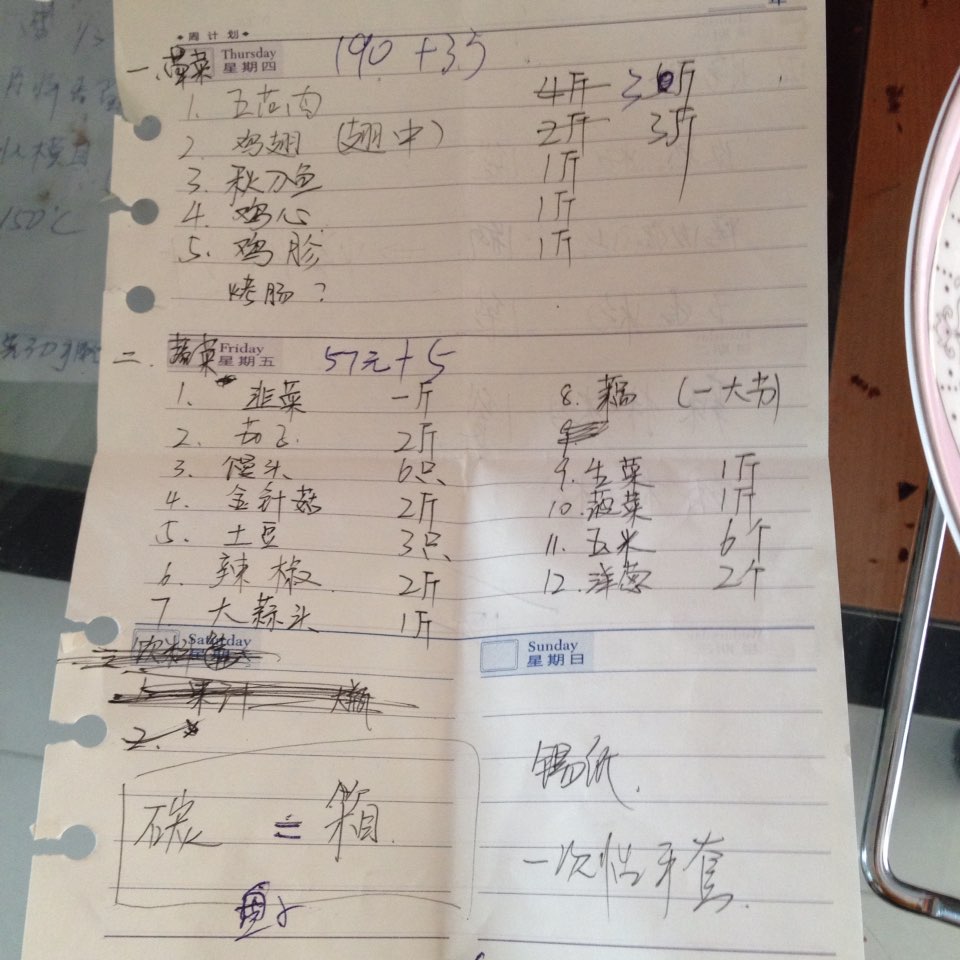 周计划
Thursday
星期四
一.荤菜 190+35
1. 五花肉 4斤 3斤
2. 鸡翅 (翅中) 2斤 3斤
3. 秋刀鱼 1斤
4. 鸡心 1斤
5. 鸡胗 1斤
烤肠?
Friday
星期五
二.蔬菜 57元+5
1. 韭菜 一斤
2. 茄子 2斤
3. 馒头 6只
4. 金针菇 2斤
5. 土豆 3只
6. 辣椒 2斤
7 大蒜头 1斤
8. 藕 (一大节)
9. 生菜 1斤
10. 菠菜 1斤
11. 玉米 6个
12. 洋葱 2个
Saturday
果汁 大瓶
2.
碳 = 箱.
Sunday
星期日
锡纸.
一次性手套.
150℃